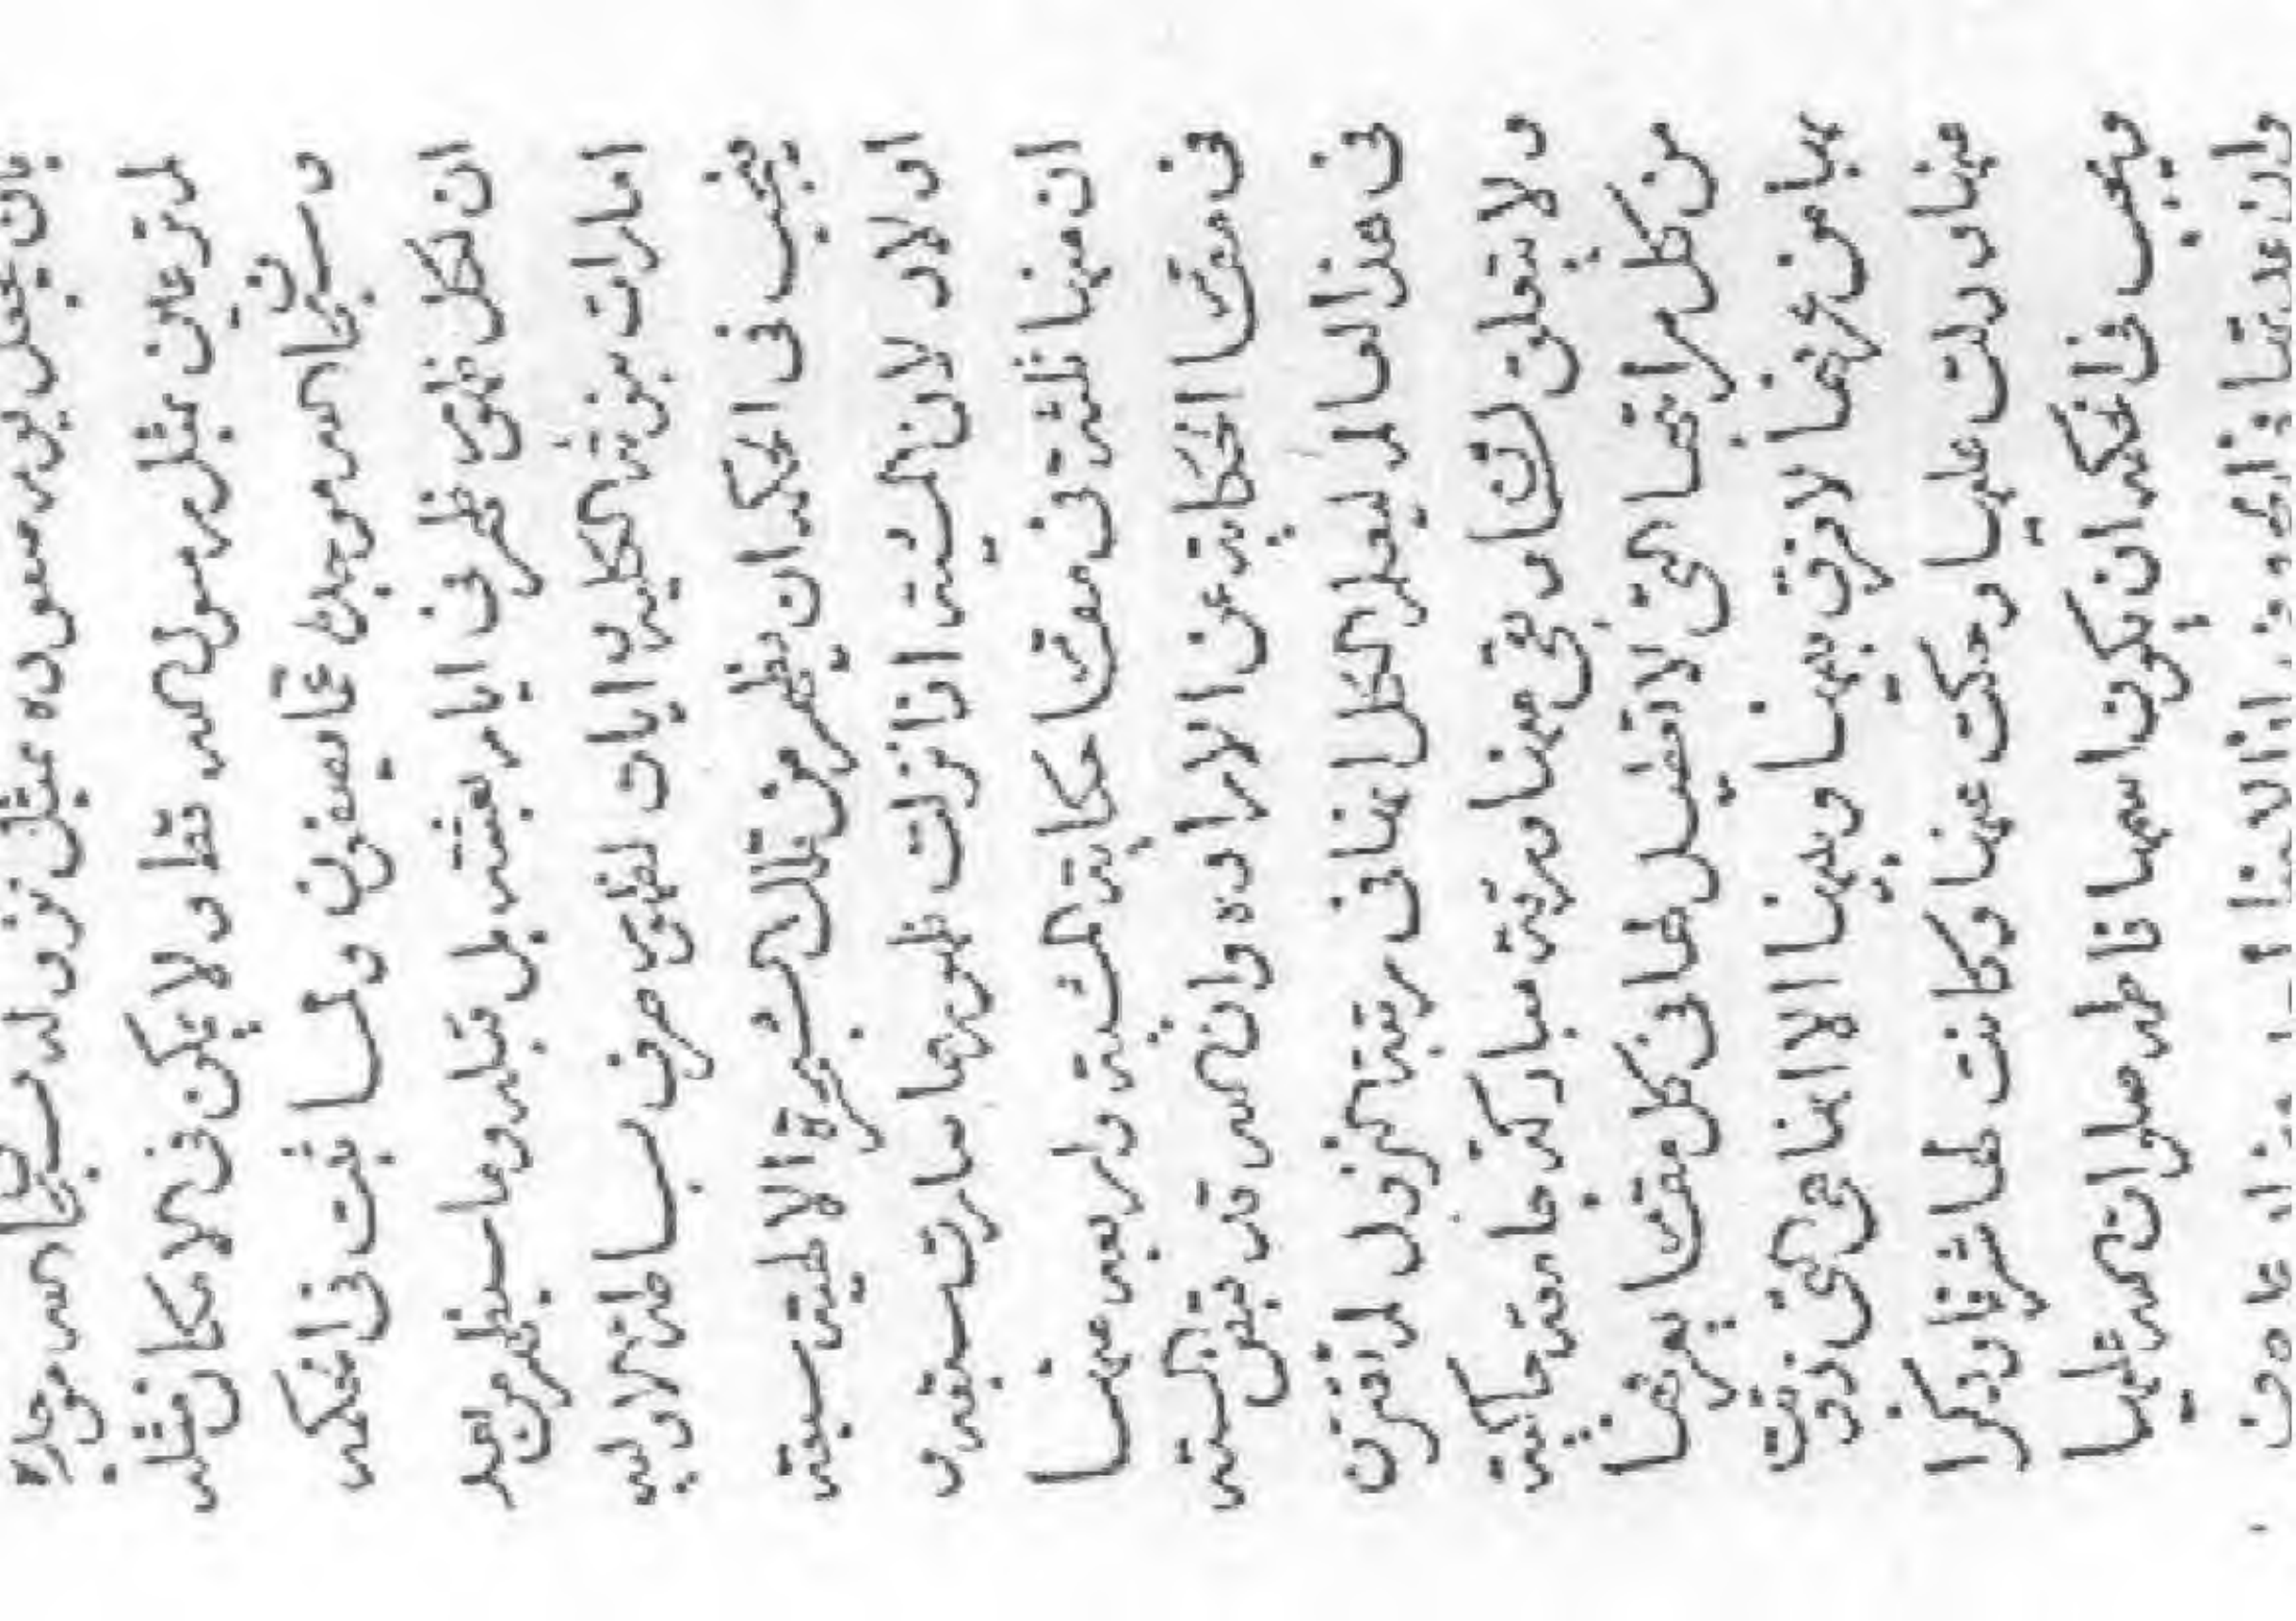 بان يجعل يوم صعوده بمثل نزوله سبحان الله موجده
لم تر عين بمثل رسول الله قط ولا يمكن في الامكان مثله
و سبحان الله موجده عما يصفون و لما ثبت في الحكمه
ان لكل ظهور ظهر في ايام بعثته بل قبله وما سيظهر من بعد
امارات بنوته الكليه و ايات لظهور صرف الاوليه
فيجب في الحكمه ان يظهر من تلك الشجرة الالهية سبعة
اولاد لان المشية اذا نزلت ظهورها صارت سبعة و
ان منها ثلثة في مقام حكاية المشية واربعه منها
في مقام الحكاية عن الاراده وان الله قد قبض الستة
في هذا العالم ليعلم الكل انها في رتبة النزول لم تقترن
و لا يتعلق لشان و بقي منها ورقة مباركة جامعة حاكية
من كل مراتبها التي لا تعطيل لها في كل مقام يعرفها
بها من عرفها لا فرق بينها و بينها الا انها هي التي ذوتت
عنها و دلت عليها و حكت عنها و كانت لها شرفا و ذكرا
و يجب في الحكمه ان يكون اسمها فاطمه صلوات الله عليها